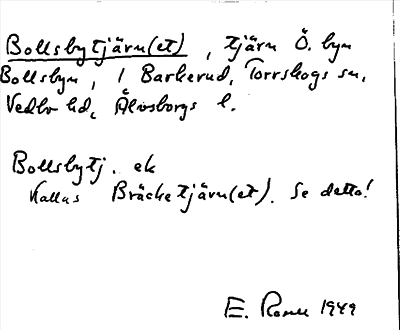 Bollsbytjärn(et), tjärn Ö. byn
Bollsbyn, 1 Barkerud, Torrskogs sn,
Vedbo hd, Älvsborgs l.
Bollsbytj. ek
kallas Bräcketjärn(et). Se detta!
E. 1949